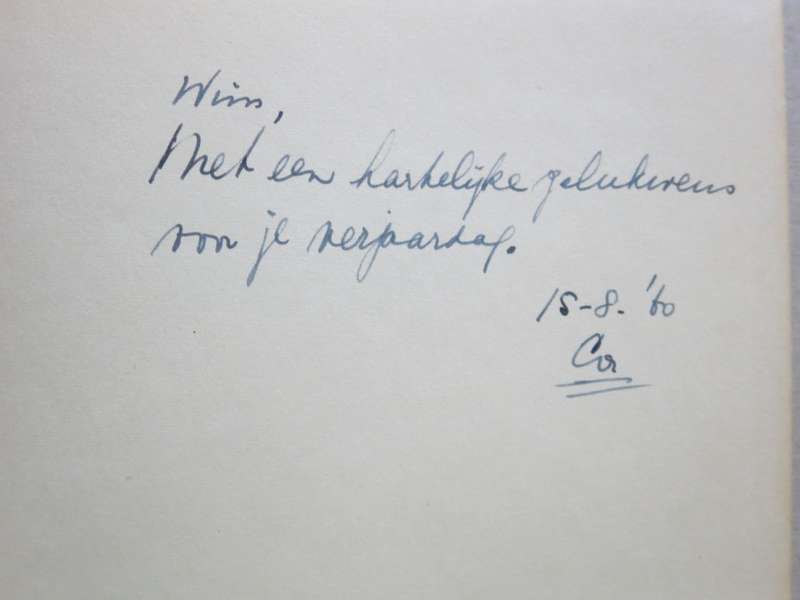 Wim,
Met een hartelijke gelukwens
voor je verjaardag.
15-8-'60
Cor